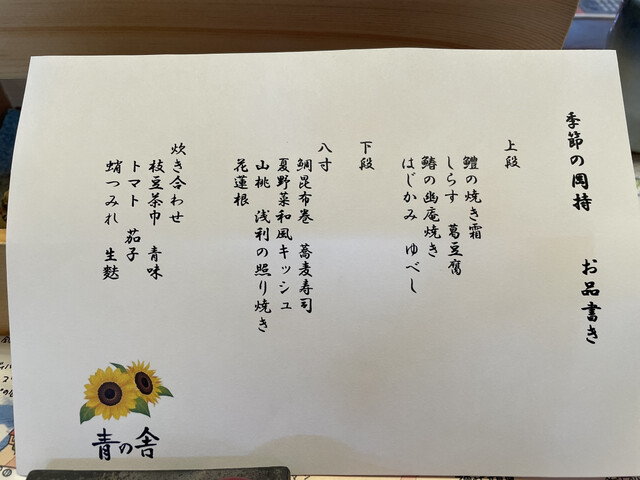 季節の岡持　お品書き
上段
鱧の焼き霜
しらす　葛豆腐
鰆の幽庵焼き
はじかみ　ゆべし
下段
八寸
鯛昆布巻　蕎麦寿司
夏野菜和風キッシュ
山桃　浅利の照り焼き
花蓮根
炊き合わせ
枝豆茶巾　青味
トマト　茄子
蛸つみれ　生麩
青の舎